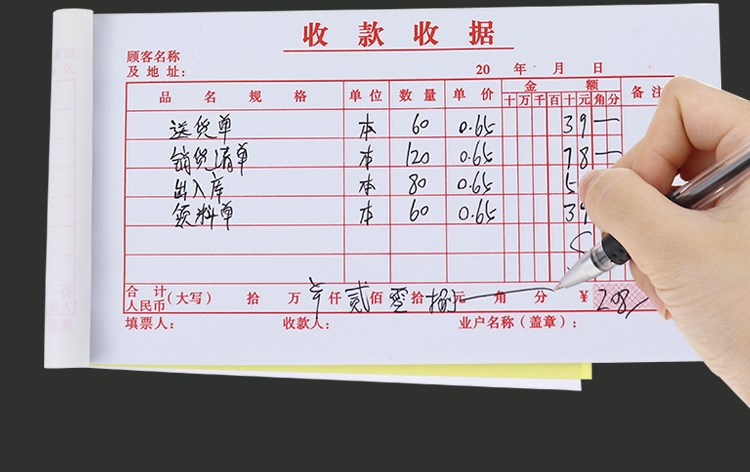 收款收据
顾客名称
及地址: 20 年 月 日
品名规格 单位 数量 单价 金额 备注
十 万 千 百 十 元 角 分
送货单 本 60 0.65 39—
销货清单 本 120 0.65 78—
出入库 本 80 0.65 5
领料单 本 60 0.65 39
合计
人民币 (大写) 拾 万 仟 贰 佰 零 拾 捌 元 角 分 ¥ 208/
填票人: 收款人: 业户名称(盖章):